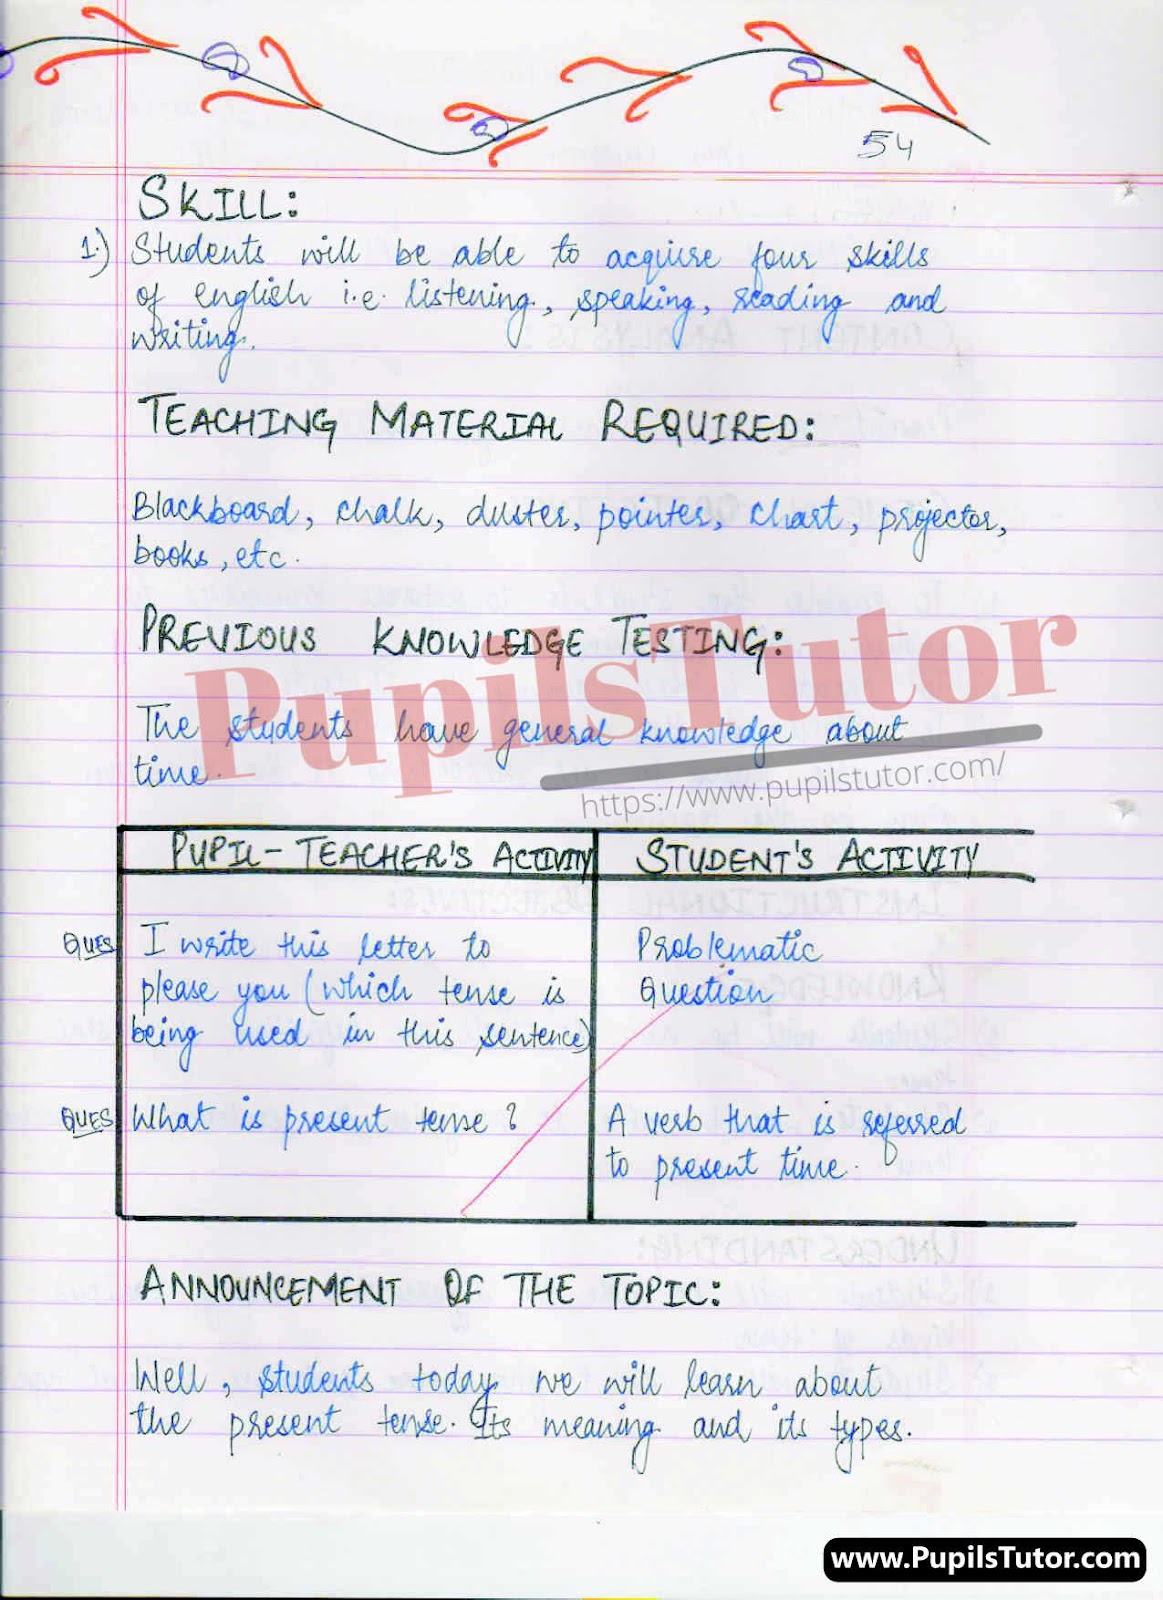 54
SKILL:
1.) Students will be able to acquire four skills
of english i.e. listening, speaking, reading and
writing.
TEACHING MATERIAL REQUIRED:
Blackboard, chalk, duster, pointer, chart, projector,
books, etc.
PREVIOUS KNOWLEDGE TESTING:
PupilsTutor
The students have general knowledge about
time.
https://www.pupilstutor.com/
PUPIL-TEACHER'S ACTIVITY STUDENT'S ACTIVITY
QUES I write this letter to Problematic
please you (which tense is Question
being used in this sentence)
QUES What is present tense? A verb that is referred
to present time.
ANNOUNCEMENT OF THE TOPIC:
Well, students today we will learn about
the present tense. Its meaning and its types.
www.PupilsTutor.com